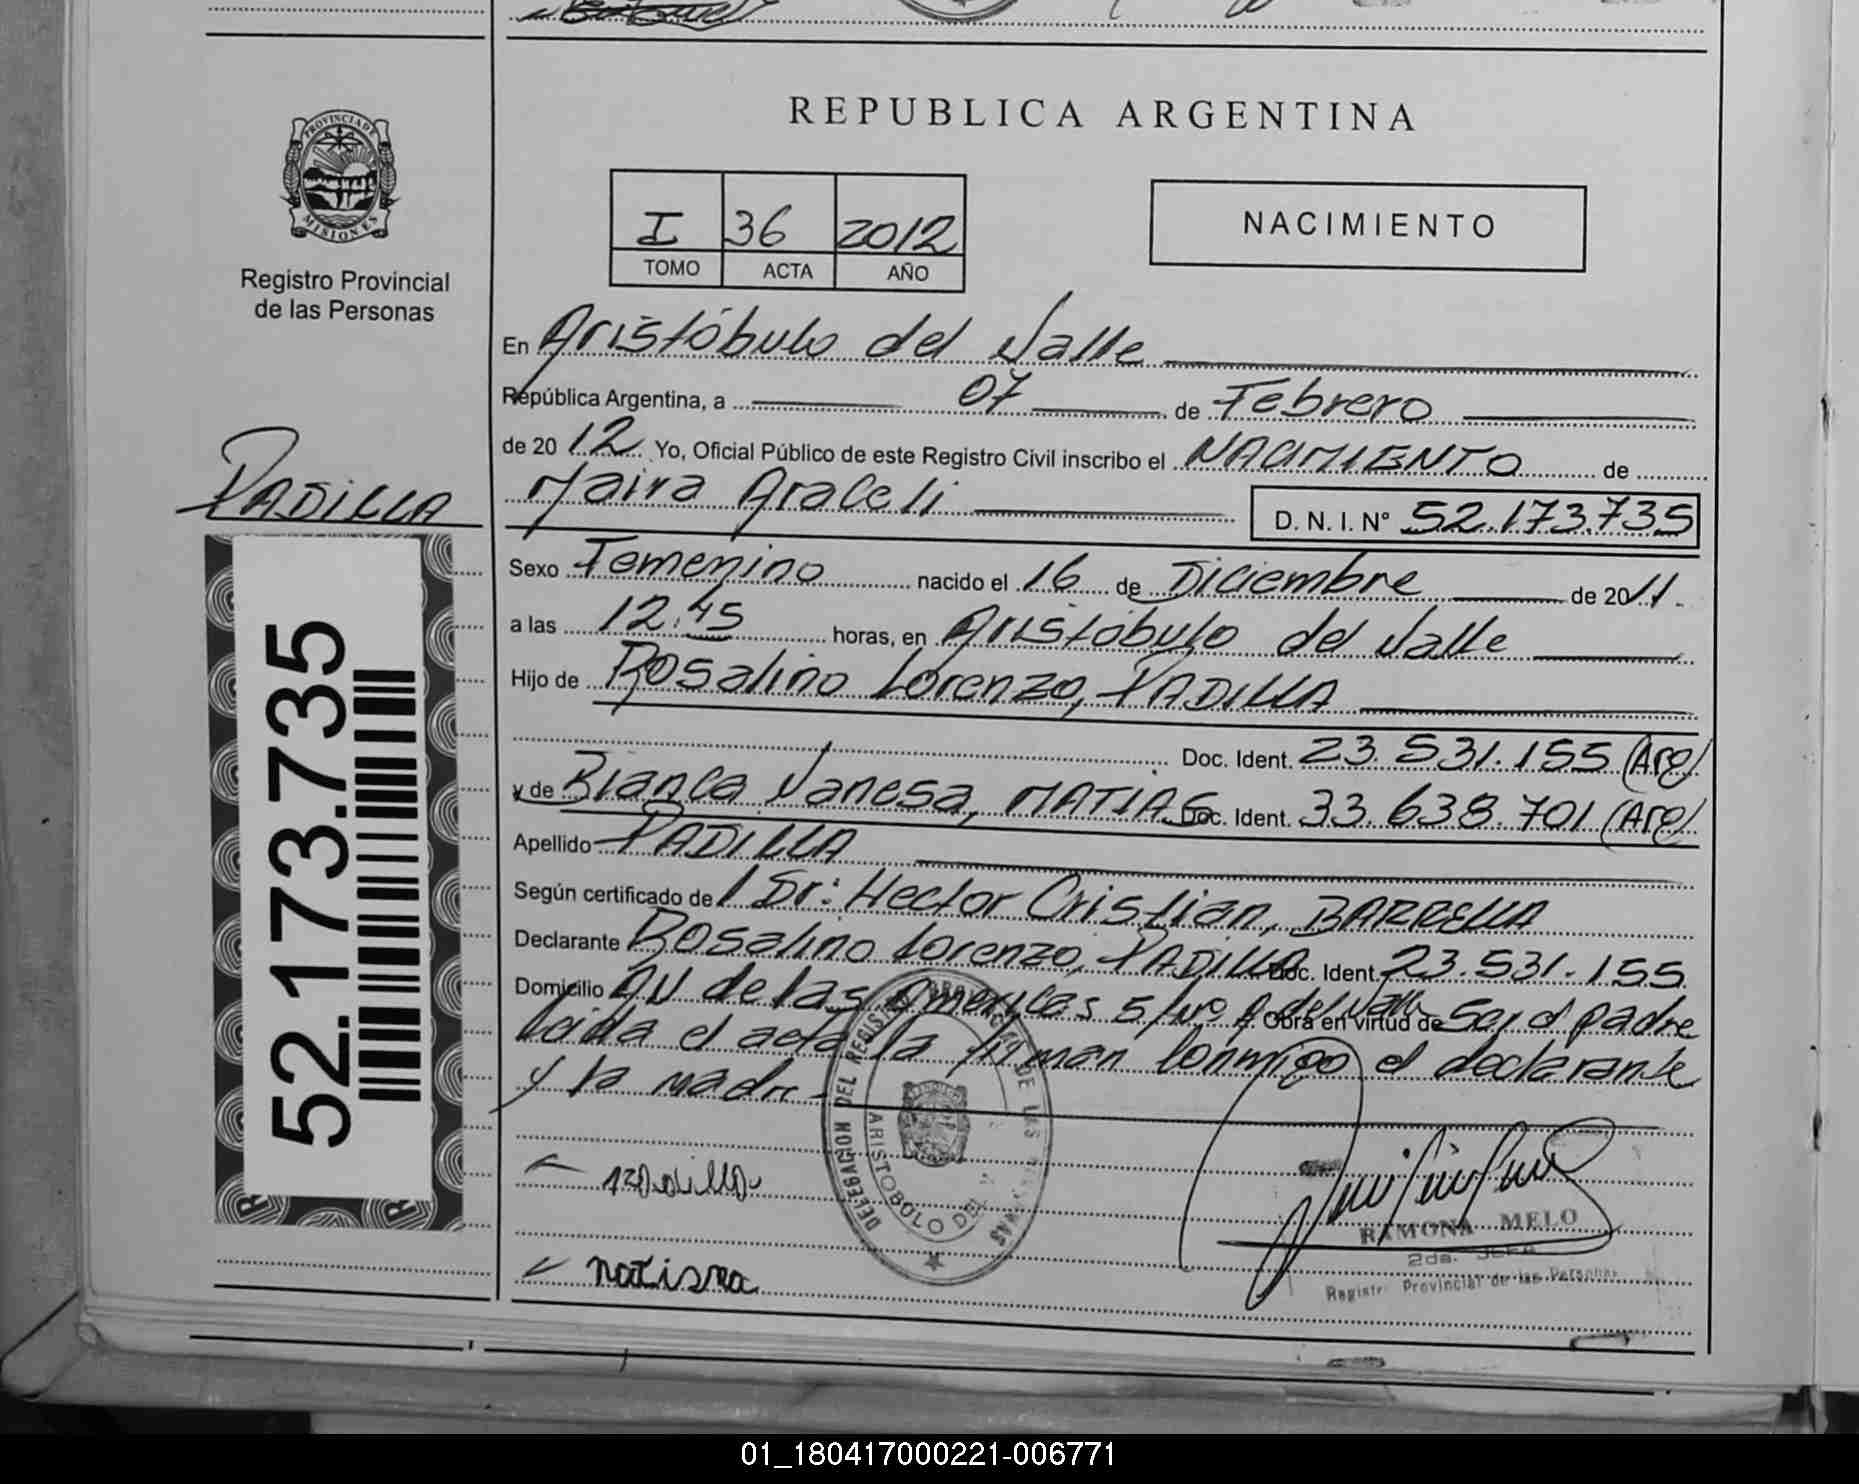 REPUBLICA ARGENTINA
PROVINCIA DE
MISIONES
Registro Provincial
de las Personas
I 36 2012
TOMO ACTA AÑO
NACIMIENTO
En Aristóbulo del Valle
República Argentina, a 07 de Febrero
de 2012 Yo, Oficial Público de este Registro Civil inscribo el NACIMIENTO de
Maira Araceli D. N. I. N° 52.173.735
PADILLA
52.173.735
Sexo Femenino nacido el 16 de Diciembre de 2011.
a las 12:45 horas, en Aristóbulo del Valle
Hijo de Rosalino Lorenzo, PADILLA
Doc. Ident. 23.531.155 (Arg)
y de Blanca Vanesa, MATIAS Doc. Ident. 33.638.701 (Arg)
Apellido PADILLA
Según certificado de Dr: Hector Cristian, BARRELLA
Declarante Rosalino Lorenzo, PADILLA Doc. Ident. 23.531.155
Domicilio AV de las Americas S/Nº A. del Valle Obra en virtud de Ser el padre
Leida el acta la firman conmigo el declarante
y la madre
DELEGACION DEL REGISTRO PROVINCIAL DE LAS PERSONAS
ARISTOBOLO DEL V
RAMONA MELO
2da. JEFA
Registro Provincial de las Personas
01_180417000221-006771